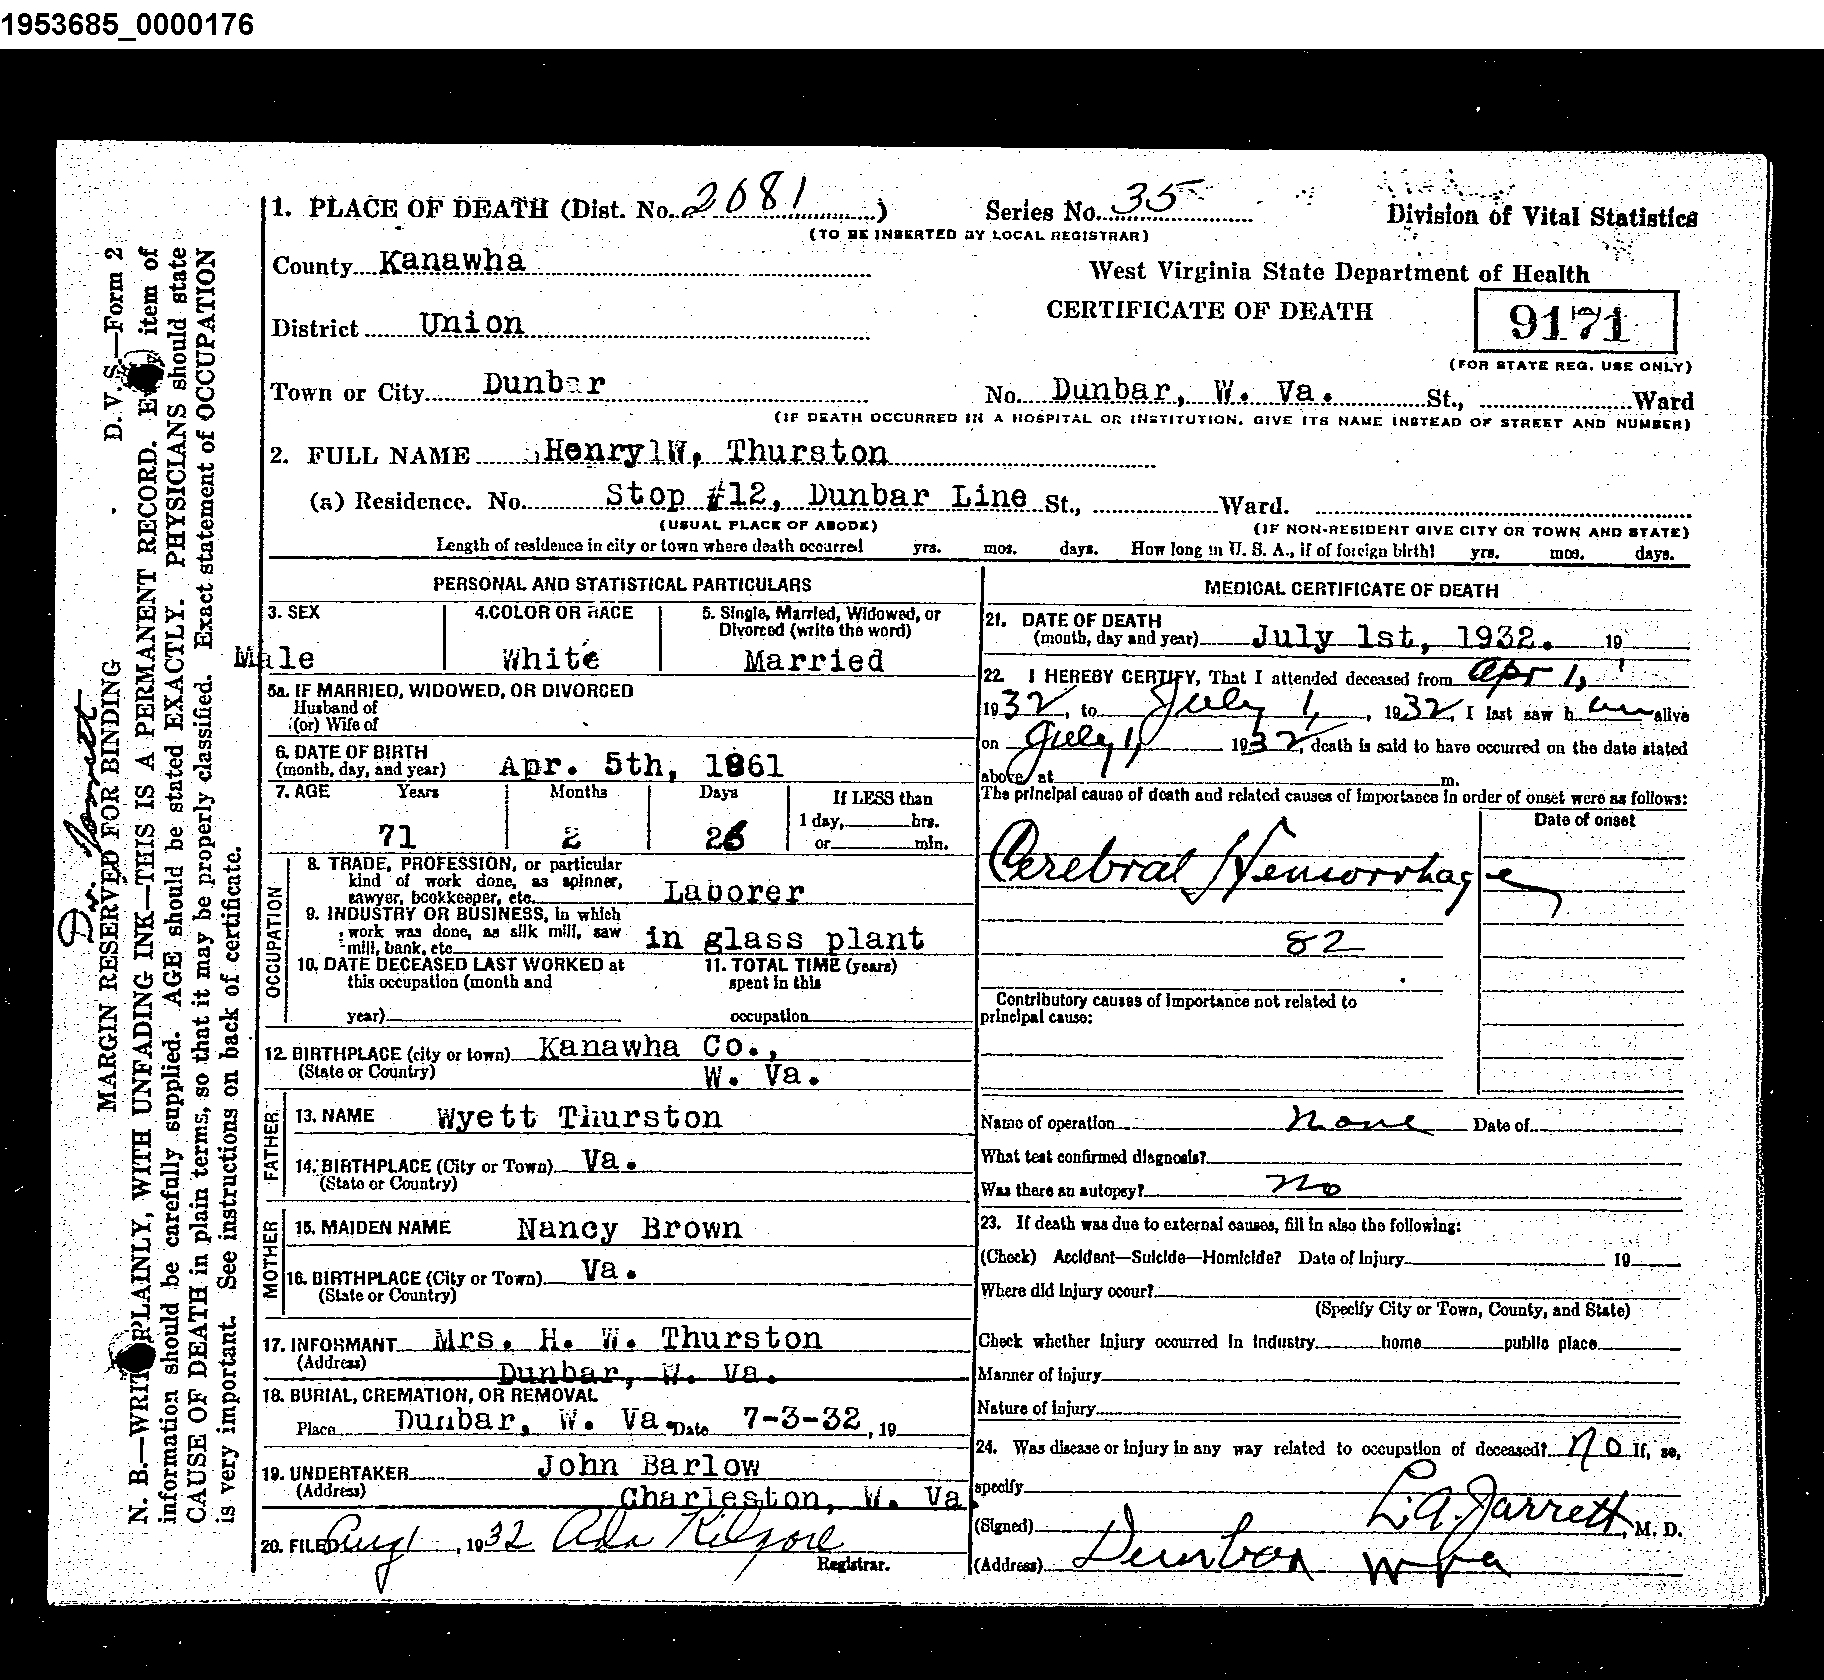 1953685_0000176
1. PLACE OF DEATH (Dist. No. 2681) Series No. 35 Division of Vital Statistics
(TO BE INSERTED BY LOCAL REGISTRAR)
County Kanawha West Virginia State Department of Health
CERTIFICATE OF DEATH 9171
District Union
(FOR STATE REG. USE ONLY)
Town or City Dunbar No. Dunbar, W. Va. St., Ward
(IF DEATH OCCURRED IN A HOSPITAL OR INSTITUTION, GIVE ITS NAME INSTEAD OF STREET AND NUMBER)
2. FULL NAME Henry W. Thurston
(a) Residence. No. Stop #12, Dunbar Line St., Ward.
(USUAL PLACE OF ABODE) (IF NON-RESIDENT GIVE CITY OR TOWN AND STATE)
Length of residence in city or town where death occurred yrs. mos. days. How long in U. S. A., if of foreign birth? yrs. mos. days.
PERSONAL AND STATISTICAL PARTICULARS
3. SEX 4. COLOR OR RACE 5. Single, Married, Widowed, or
Divorced (write the word)
Male White Married
5a. IF MARRIED, WIDOWED, OR DIVORCED
Husband of
(or) Wife of
6. DATE OF BIRTH
(month, day, and year) Apr. 5th, 1861
7. AGE Years Months Days If LESS than
1 day, hrs.
71 2 26 or min.
OCCUPATION
8. TRADE, PROFESSION, or particular
kind of work done, as spinner,
sawyer, bookkeeper, etc. Laborer
9. INDUSTRY OR BUSINESS, in which
work was done, as silk mill, saw
mill, bank, etc. in glass plant
10. DATE DECEASED LAST WORKED at 11. TOTAL TIME (years)
this occupation (month and spent in this
year) occupation
12. BIRTHPLACE (city or town) Kanawha Co.,
(State or Country) W. Va.
FATHER
13. NAME Wyett Thurston
14. BIRTHPLACE (City or Town) Va.
(State or Country)
MOTHER
15. MAIDEN NAME Nancy Brown
16. BIRTHPLACE (City or Town) Va.
(State or Country)
17. INFORMANT Mrs. H. W. Thurston
(Address) Dunbar, W. Va.
18. BURIAL, CREMATION, OR REMOVAL
Place Dunbar, W. Va. Date 7-3-32, 19
19. UNDERTAKER John Barlow
(Address) Charleston, W. Va.
20. FILED Aug 1, 1932 Ada Kilgore
Registrar.
MEDICAL CERTIFICATE OF DEATH
21. DATE OF DEATH
(month, day and year) July 1st, 1932. 19
22. I HEREBY CERTIFY, That I attended deceased from Apr 1,
1932, to July 1, 1932, I last saw h im alive
on July 1, 1932, death is said to have occurred on the date stated
above, at m.
The principal cause of death and related causes of importance in order of onset were as follows:
Date of onset
Cerebral Hemorrhage
82
Contributory causes of importance not related to
principal cause:
Name of operation none Date of
What test confirmed diagnosis?
Was there an autopsy? no
23. If death was due to external causes, fill in also the following:
(Check) Accident—Suicide—Homicide? Date of Injury 19
Where did injury occur?
(Specify City or Town, County, and State)
Check whether injury occurred in industry home public place
Manner of Injury
Nature of Injury
24. Was disease or injury in any way related to occupation of deceased? no If, so,
specify
(Signed) L. A. Jarrett, M. D.
(Address) Dunbar W Va
D. V. S.—Form 2
MARGIN RESERVED FOR BINDING
Dr. Jarrett
N. B.—WRITE PLAINLY, WITH UNFADING INK—THIS IS A PERMANENT RECORD. Every item of
information should be carefully supplied. AGE should be stated EXACTLY. PHYSICIANS should state
CAUSE OF DEATH in plain terms, so that it may be properly classified. Exact statement of OCCUPATION
is very important. See instructions on back of certificate.